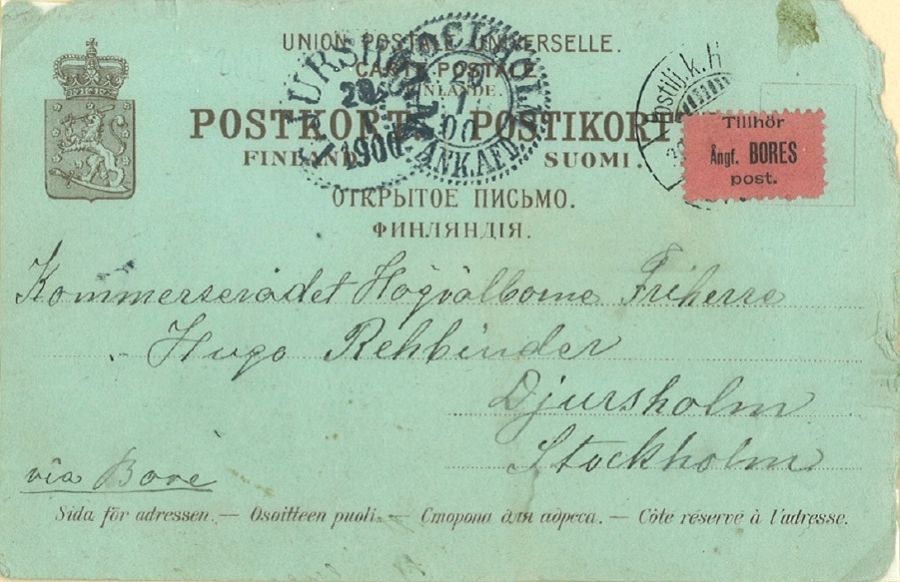 UNION POSTALE UNIVERSELLE.
CARTE POSTALE
FINLANDE.
POSTKORT POSTIKORT
FINLAND SUOMI.
ОТКРЫТОЕ ПИСЬМО.
ФИНЛЯНДІЯ.
1900
ANK.AFD.
Postilj.k.H
Tillhör
Ångf. BORES
post.
Kommerserådet Högvälborne Friherre
Hugo Rehbinder
Djursholm
Stockholm
via Bore
Sida för adressen. — Osoitteen puoli. — Сторона для адреса. — Côté réservé à l'adresse.